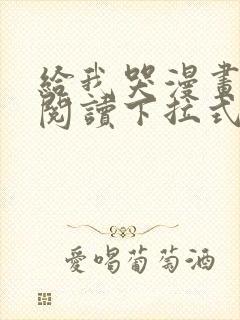 給我哭漫畫
閱讀下拉式
愛喝葡萄酒